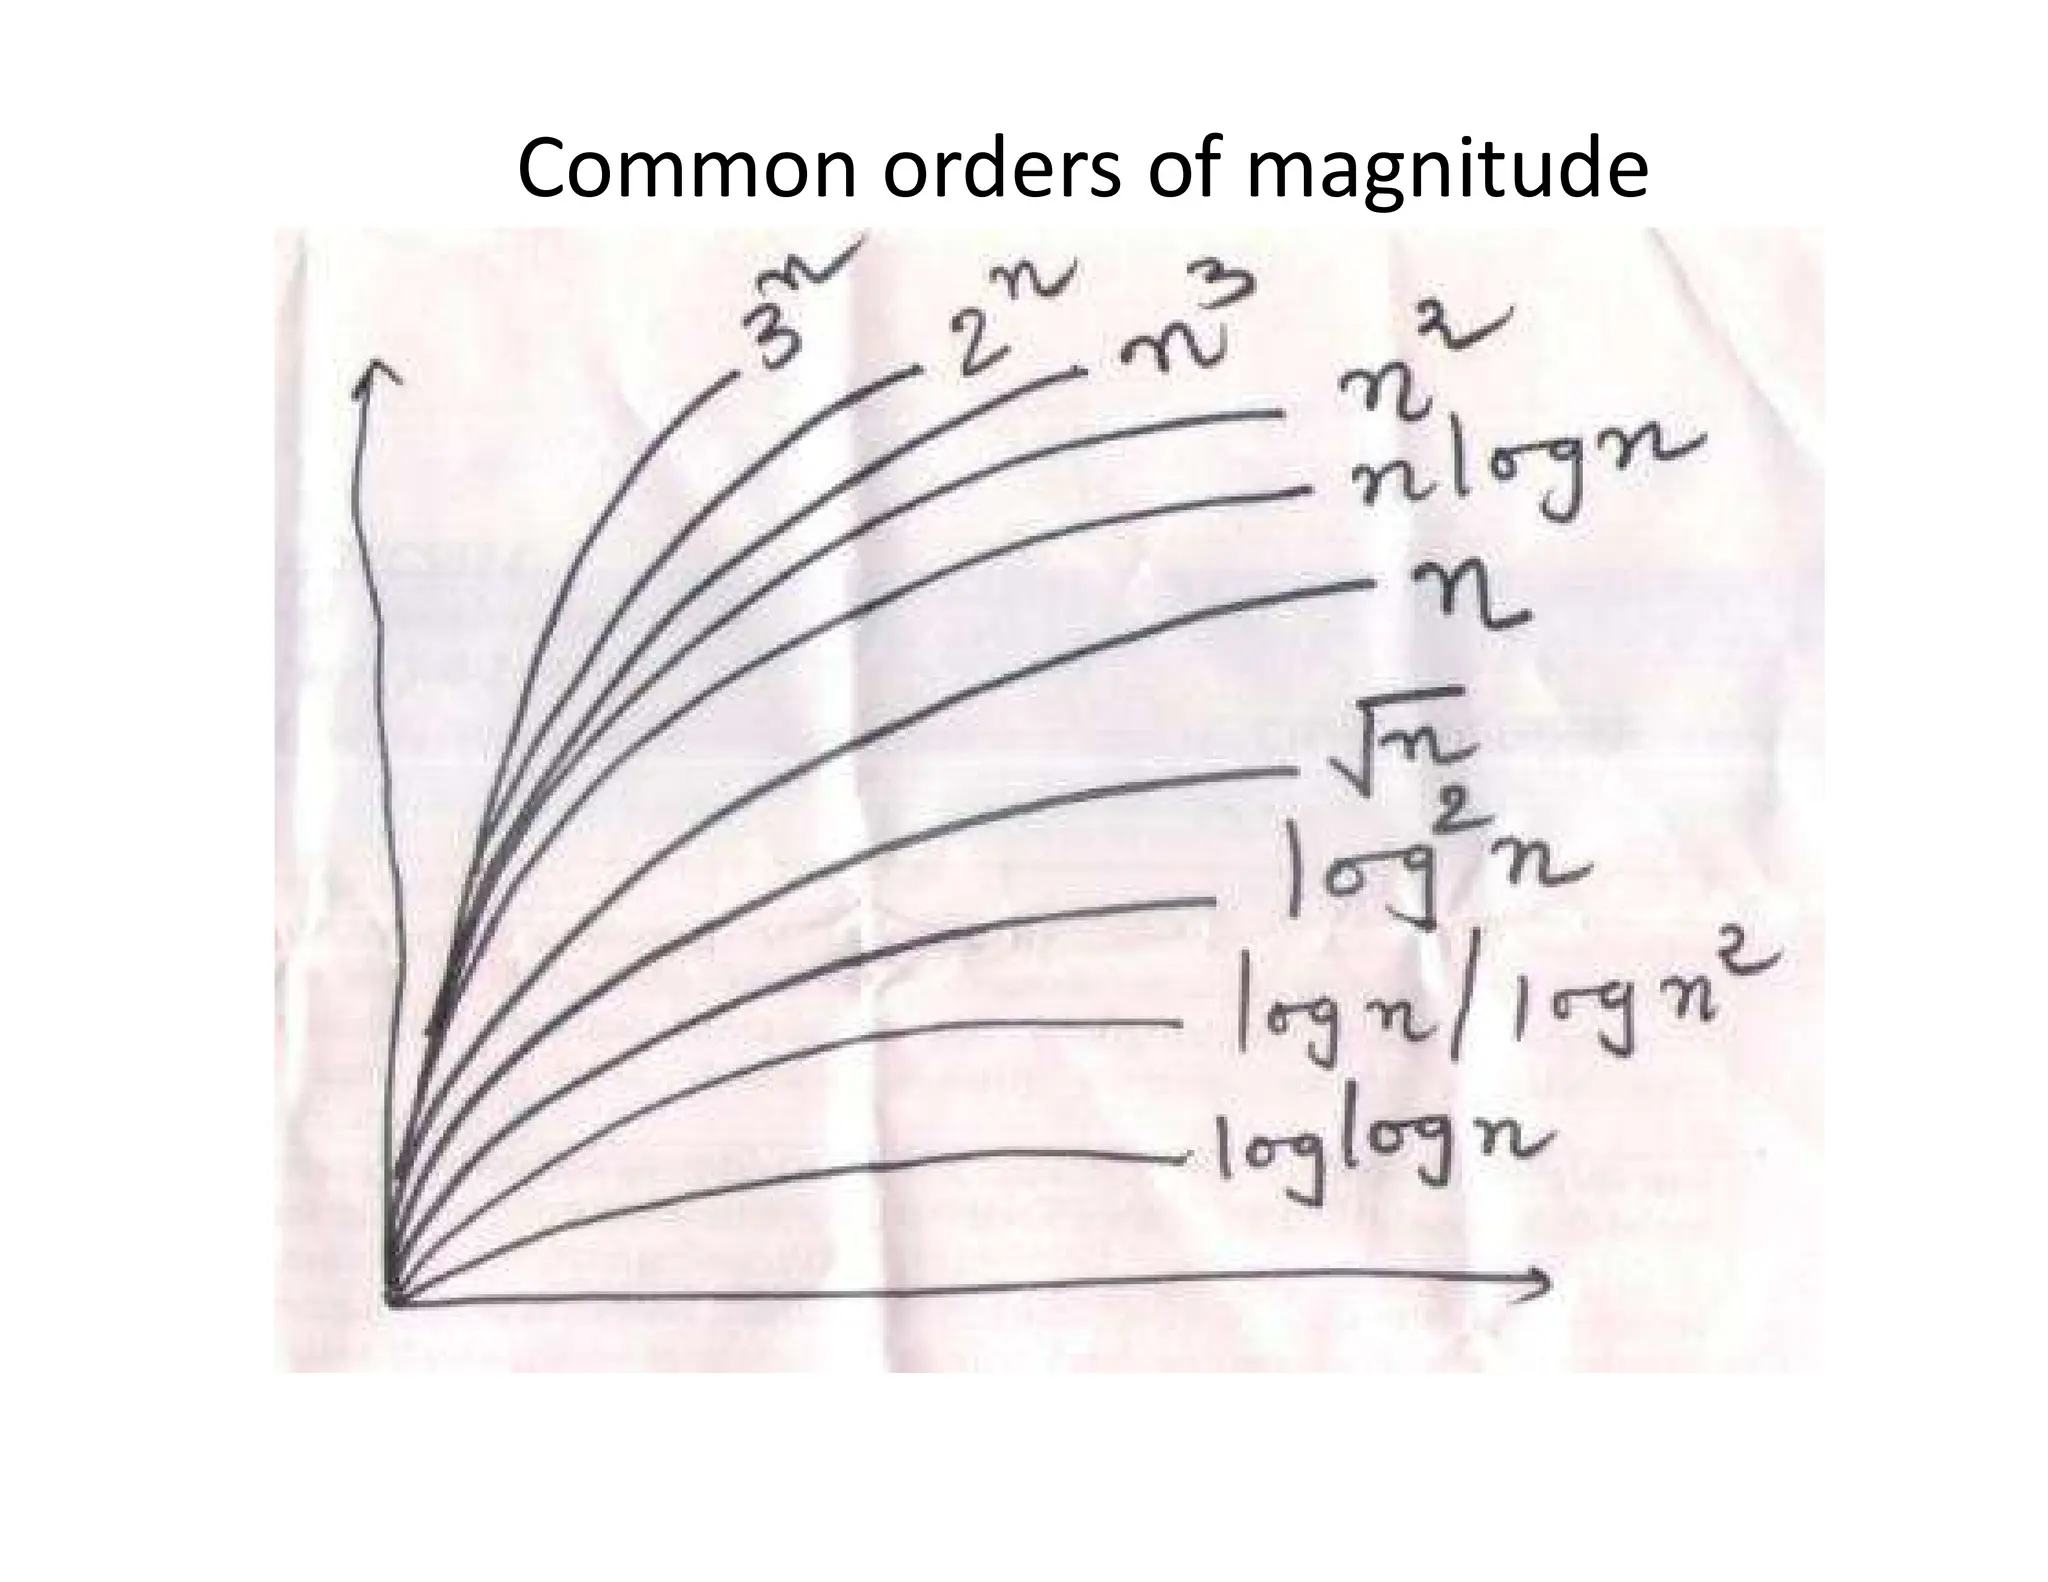 Common orders of magnitude
3ⁿ
2ⁿ
n³
n²
n log n
n
√n
log²n
log n / log n²
log log n